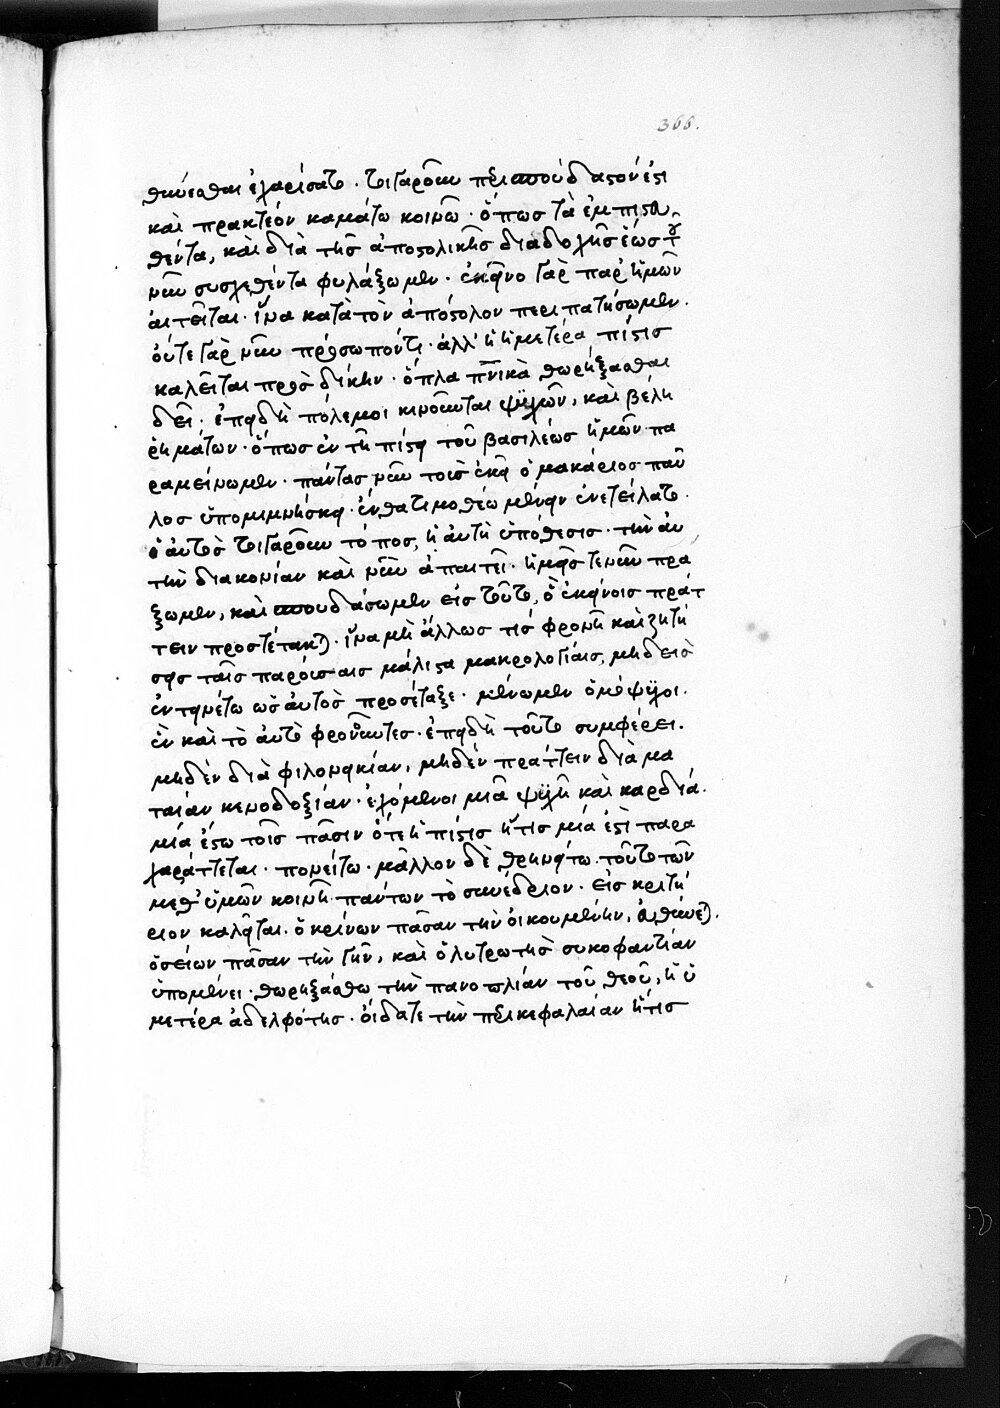 366.
θύνεσθαι ἐχαρίσατο. τοιγαροῦν περισπούδαστόν ἐστι
καὶ πρακτέον καμάτω κοινῶ. ὅπως τὰ ἐμπιστευ
θέντα, καὶ διὰ τῆς ἀποστολικῆς διαδοχῆς ἕως τοῦ
νῦν συσχεθέντα φυλάξωμεν. ἐκεῖνο γὰρ παρ ἡμῶν
αἰτεῖται. ἵνα κατὰ τὸν ἀπόστολον περιπατήσωμεν.
οὔτε γὰρ νῦν πρόσωπόν τι. ἀλλ' ἡ ἡμετέρα πίστις
καλεῖται πρὸς δίκην. ὅπλα πνικὰ θωρήξασθαι
δεῖ. ἐπειδὴ πόλεμοι κινοῦνται ψυχῶν, καὶ βέλη
ῥημάτων. ὅπως ἐν τῆ πίστει τοῦ βασιλέως ἡμῶν πα
ραμείνωμεν. πάντας νῦν τοὺς ἐκεῖ ὁ μακάριος παῦ
λος ὑπομιμνήσκει. ἔνθα τιμοθέω μένειν ἐνετείλατο.
ὁ αὐτὸς τοιγαροῦν τόπος, ἡ αὐτὴ ὑπόθεσις. τὴν αὐ
τὴν διακονίαν καὶ νῦν ἀπαιτεῖ. ἡμεῖς τε νῦν πρά
ξωμεν, καὶ σπουδάσωμεν εἰς τοῦτο, ὃ ἐκείνοις πράτ
τειν προστέτακται. ἵνα μὴ ἄλλως τις φρονῆ καὶ ζητή
σεις ταῖς παρούσαις μάλιστα μακρολογίαις, μηδεὶς
ἐντεινέτω ὡς αὐτὸς προσέταξε. μένωμεν ὁμόψυχοι.
ἓν καὶ τὸ αὐτὸ φρονοῦντες. ἐπειδὴ τοῦτο συμφέρει.
μηδὲν διὰ φιλονεικίαν, μηδὲν πράττειν διὰ μα
ταίαν κενοδοξίαν. ἐχόμενοι μιᾶ ψυχῆ καὶ καρδία.
μία ἔστω τοῖς πᾶσιν ὅτε ἡ πίστις ἥτις μία ἐστὶ παρα
χαράττεται. πονείτω. μᾶλλον δὲ θρηνείτω τοῦτο τῶν
μεθ' ὑμῶν κοινῆ πάντων τὸ συνέδριον. εἰς κριτή
ριον καλεῖται. ὁ κρίνων πᾶσαν τὴν οἰκουμένην, εὐθύνεται.
ὁ σείων πᾶσαν τὴν γῆν, καὶ ὁ λυτρωτὴς συκοφαντίαν
ὑπομένει. θωρηξάσθω τὴν πανοπλίαν τοῦ θεοῦ, ἡ ὑ
μετέρα ἀδελφότης. οἴδατε τὴν περικεφαλαίαν ἥτις